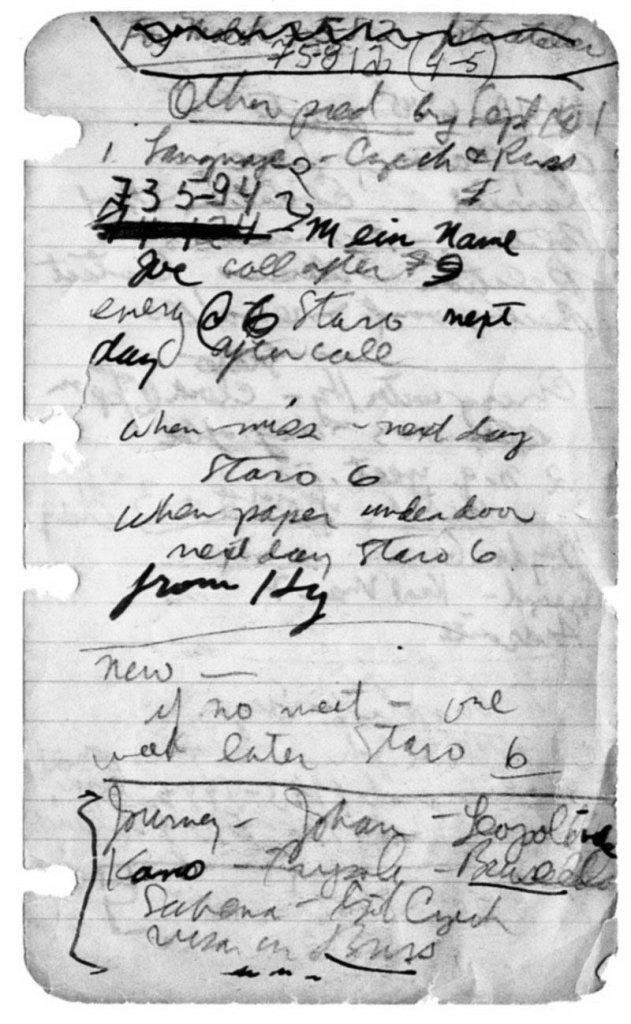 75812 (4-5)
Other pred by Sept 1
1. Languages - Czech & Russ
735-94
Mein Name
Joe call after 9
every @ 6 Staro next
day after call
when miss - next day
Staro 6
when paper under door
next day Staro 6
from Hy
new —
if no meet - one
week later Staro 6
Journey - Johan - Leopoldville
Kano - Tripole -
Sabena - Get Czech
visa in Bruss